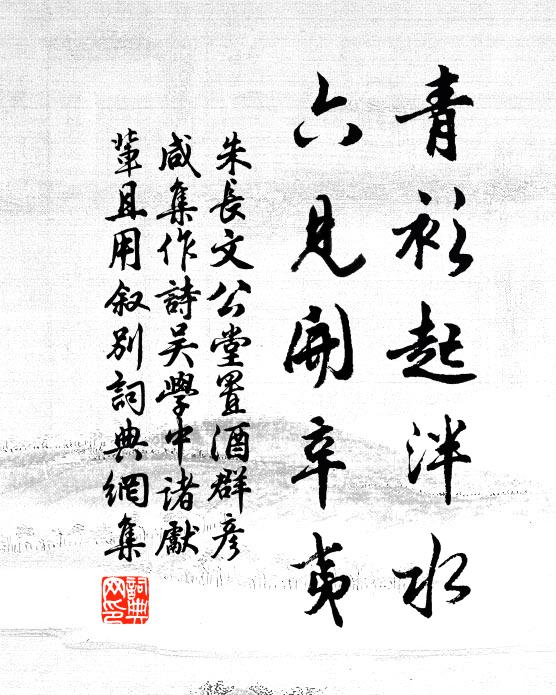 青衫起泮水
六見開辛夷
朱長文公堂置酒群彥
咸集作詩吴學中諸獻
輩且用叙別詞典網集
詞典
网印